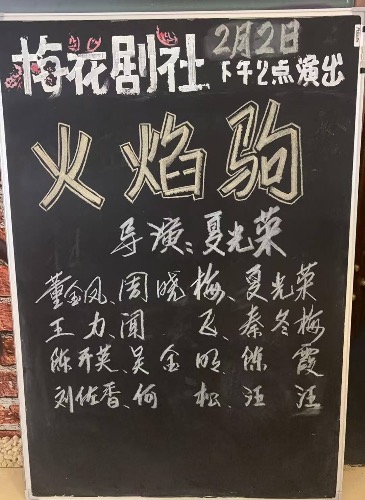 梅花剧社 2月2日
下午2点演出
火焰驹
导演:夏光菜
董金凤、周晓梅、夏光菜
王力、闻飞、秦冬梅
陈开英、吴金明、陈霞
刘佐香、何松、汪汪